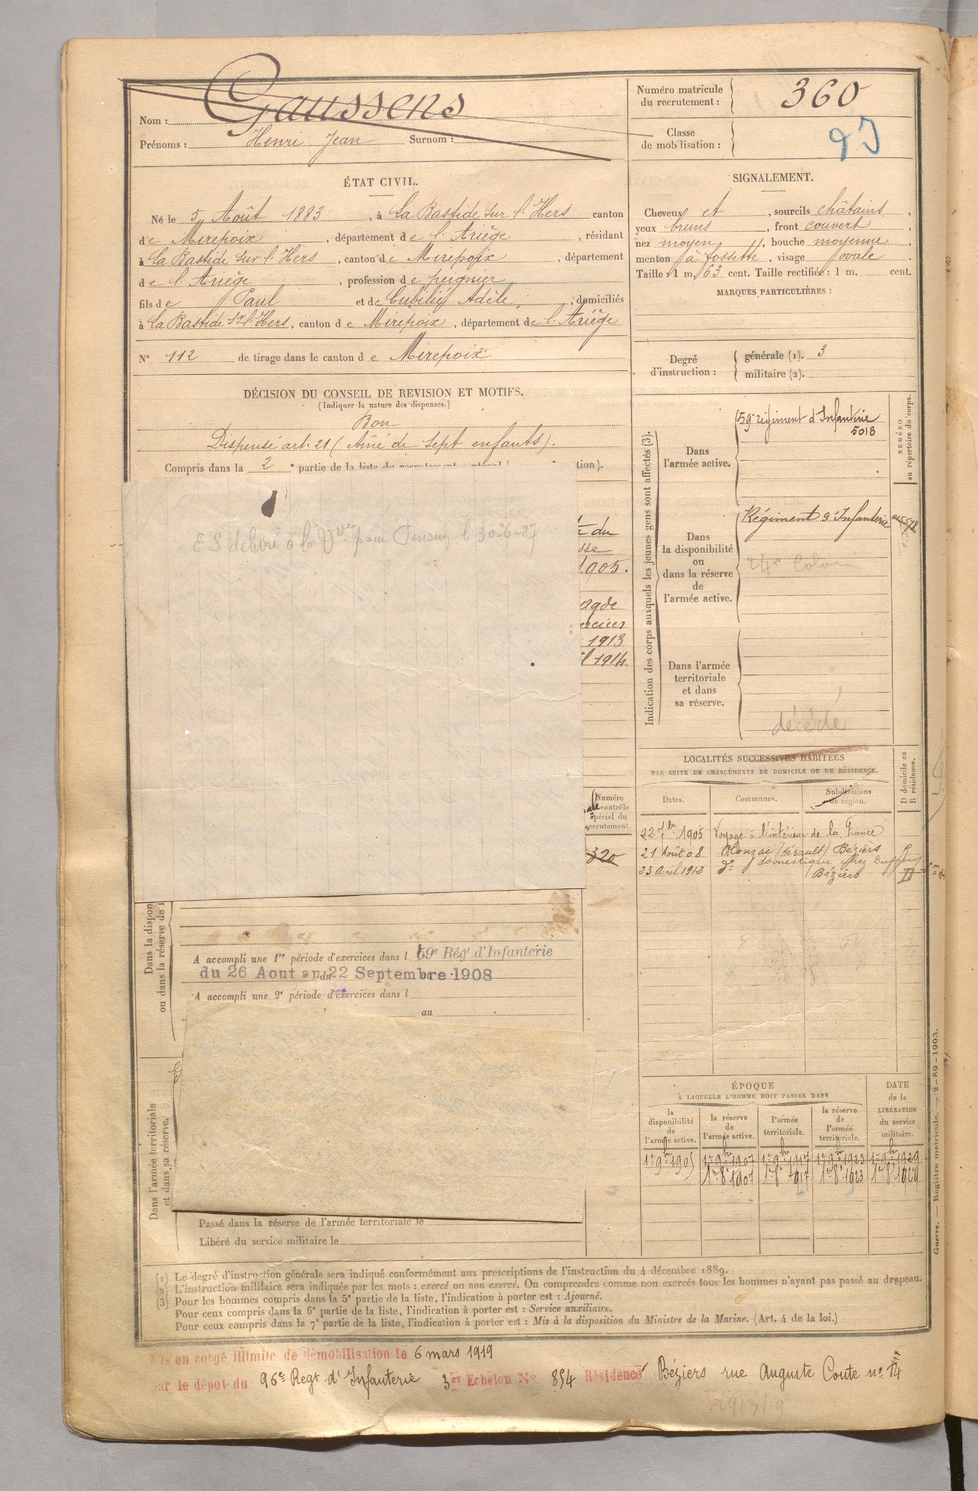 Nom : Gaussens
Prénoms : Henri Jean Surnom :
Numéro matricule
du recrutement : 360
Classe
de mobilisation :
ÉTAT CIVIL.
Né le 5 Août 1883, à La Bastide sur l'Hers canton
de Mirepoix, département de l'Ariège, résidant
à La Bastide sur l'Hers, canton de Mirepoix, département
de l'Ariège, profession de peignier
fils de Paul et de Cubilié Adèle, domiciliés
à La Bastide Sr l'Hers, canton de Mirepoix, département de l'Ariège
N° 112 de tirage dans le canton de Mirepoix
SIGNALEMENT.
Cheveux et, sourcils châtains,
yeux bruns, front couvert
nez moyen, bouche moyenne
menton à fossette, visage ovale
Taille : 1 m. 63 cent. Taille rectifiée : 1 m. cent.
MARQUES PARTICULIÈRES :
Degré
d'instruction :
générale (1). 3
militaire (2).
DÉCISION DU CONSEIL DE REVISION ET MOTIFS.
(Indiquer la nature des dispenses.)
Bon
Dispensé art. 21 (Aîné de sept enfants).
Compris dans la 2e partie de la liste du recrutement
tion).
ES délivré à la Vve pour Pension le 30-6-27
du
1905.
1913
1914.
Indication des corps auxquels les jeunes gens sont affectés (3).
NUMÉRO
au répertoire du corps.
Dans
l'armée active.
59e régiment d'Infanterie
5018
Dans
la disponibilité
ou
dans la réserve
de
l'armée active.
Régiment d'Infanterie
24e Colon
Dans l'armée
territoriale
et dans
sa réserve.
décédé
LOCALITÉS SUCCESSIVES HABITÉES
PAR SUITE DE CHANGEMENTS DE DOMICILE OU DE RÉSIDENCE.
Dates.
Communes.
Subdivisions
de région.
D domicile ou
R résidence.
22 7bre 1905 Voyage à l'intérieur de la France
21 Août 08 Olonzac (Hérault) Béziers R
23 Avril 1913 do domestique chez
Béziers D
Numéro
contrôle
spécial du
recrutement.
320
Dans la dispon
ou dans la réserve de l
A accompli une 1re période d'exercices dans l 59e Régt d'Infanterie
du 26 Aout au 22 Septembre 1908
A accompli une 2e période d'exercices dans l
au
Dans l'armée territoriale
et dans sa réserve.
Passé dans la réserve de l'armée territoriale le
Libéré du service militaire le
ÉPOQUE
À LAQUELLE L'HOMME DOIT PASSER DANS
DATE
de la
LIBÉRATION
du service
militaire.
la
disponibilité
de
l'armée active.
la réserve
de
l'armée active.
l'armée
territoriale.
la réserve
de
l'armée
territoriale.
1er 9bre 1905 1er 9bre 1907 1er 9bre 1917 1er 9bre 1923 1er 9bre 1929
1er 8bre 1907 1er 8bre 1917 1er 8bre 1923 1er 8bre 1929
(1) Le degré d'instruction générale sera indiqué conformément aux prescriptions de l'instruction du 4 décembre 1889.
(2) L'instruction militaire sera indiquée par les mots : exercé ou non exercé. On comprendra comme non exercés tous les hommes n'ayant pas passé au drapeau.
(3) Pour les hommes compris dans la 5e partie de la liste, l'indication à porter est : Ajourné.
Pour ceux compris dans la 6e partie de la liste, l'indication à porter est : Service auxiliaire.
Pour ceux compris dans la 7e partie de la liste, l'indication à porter est : Mis à la disposition du Ministre de la Marine. (Art. 4 de la loi.)
Guerre. — Registre matricule. — 2-89-1903.
Mis en congé illimité de démobilisation le 6 mars 1919
par le dépôt du 96e Regt d'Infanterie 3er Echelon No 854 Résidence Béziers rue Auguste Comte no 14